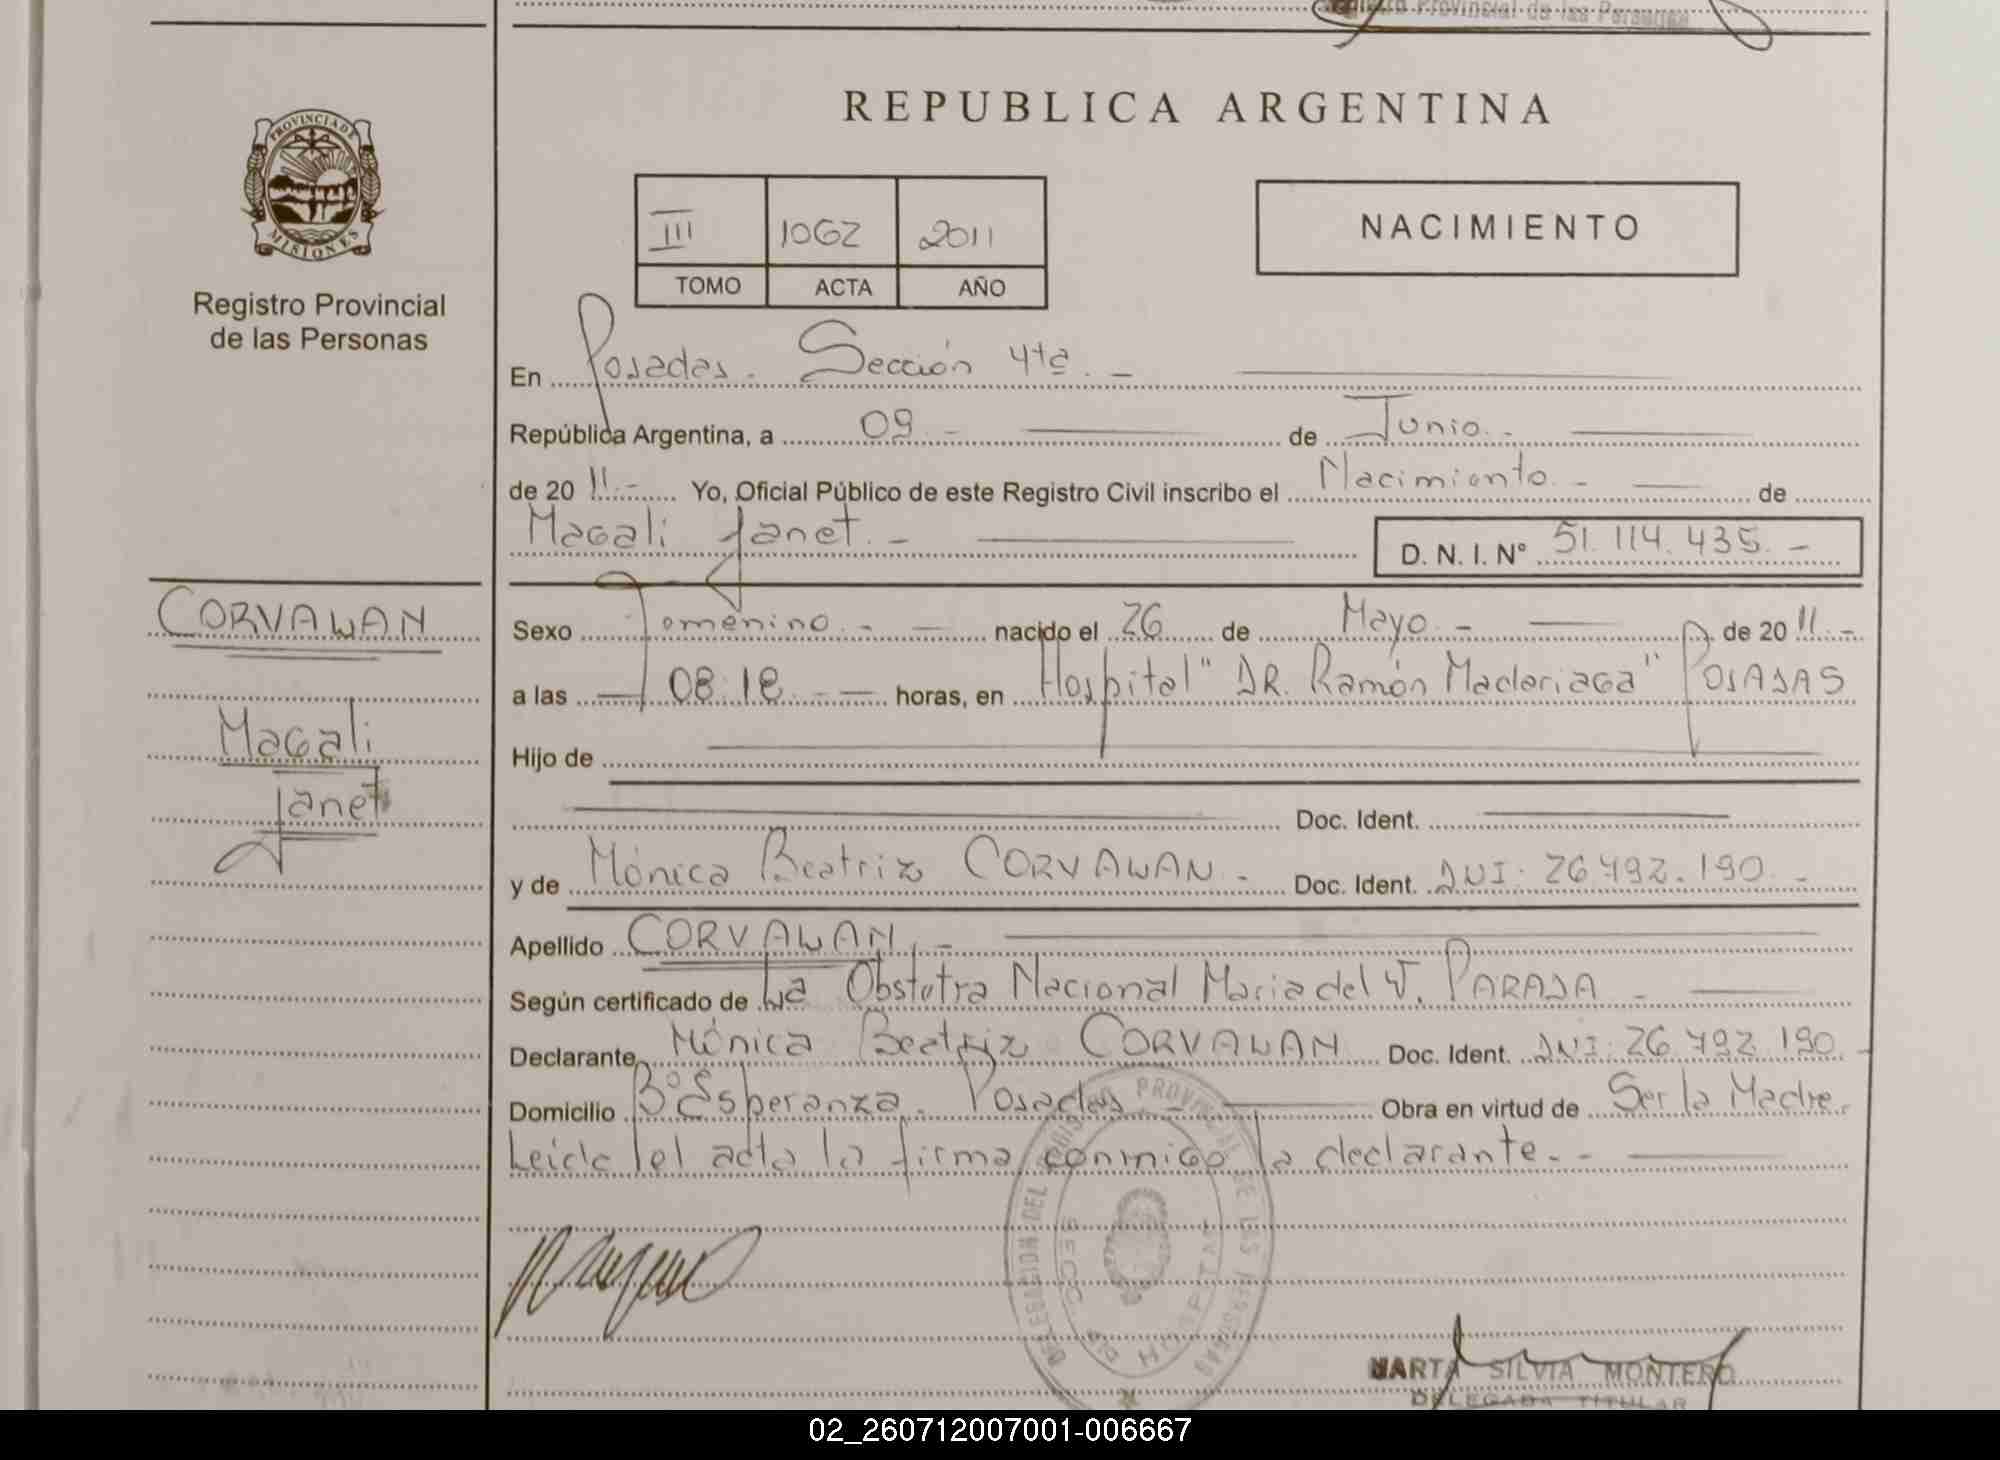 Registro Provincial de las Personas
REPUBLICA ARGENTINA
PROVINCIA DE
MISIONES
Registro Provincial
de las Personas
III 1062 2011
TOMO ACTA AÑO
NACIMIENTO
En Posadas. Sección 4ta. -
República Argentina, a 09 - de Junio. -
de 20 11.- Yo, Oficial Público de este Registro Civil inscribo el Nacimiento. - de
Magali Janet. -
D. N. I. N° 51.114.435. -
CORVALAN
Magali
Janet
Sexo Femenino. - nacido el 26 de Mayo. - de 20 11. -
a las 08:18. - horas, en Hospital "DR. Ramón Madariaga" POSADAS
Hijo de
Doc. Ident.
y de Mónica Beatriz CORVALAN. - Doc. Ident. DNI: 26.792.190. -
Apellido CORVALAN. -
Según certificado de La Obstetra Nacional Maria del V. PARADA -
Declarante Mónica Beatriz CORVALAN Doc. Ident. DNI: 26.792.190 -
Domicilio B° Esperanza. Posadas - Obra en virtud de Ser la Madre.
Leída el acta la firma conmigo la declarante. -
DELEGACION DEL REGISTRO PROVINCIAL DE LAS PERSONAS
SECC.
HOSPITAL
MARTA SILVIA MONTERO
DELEGADA TITULAR
02_260712007001-006667